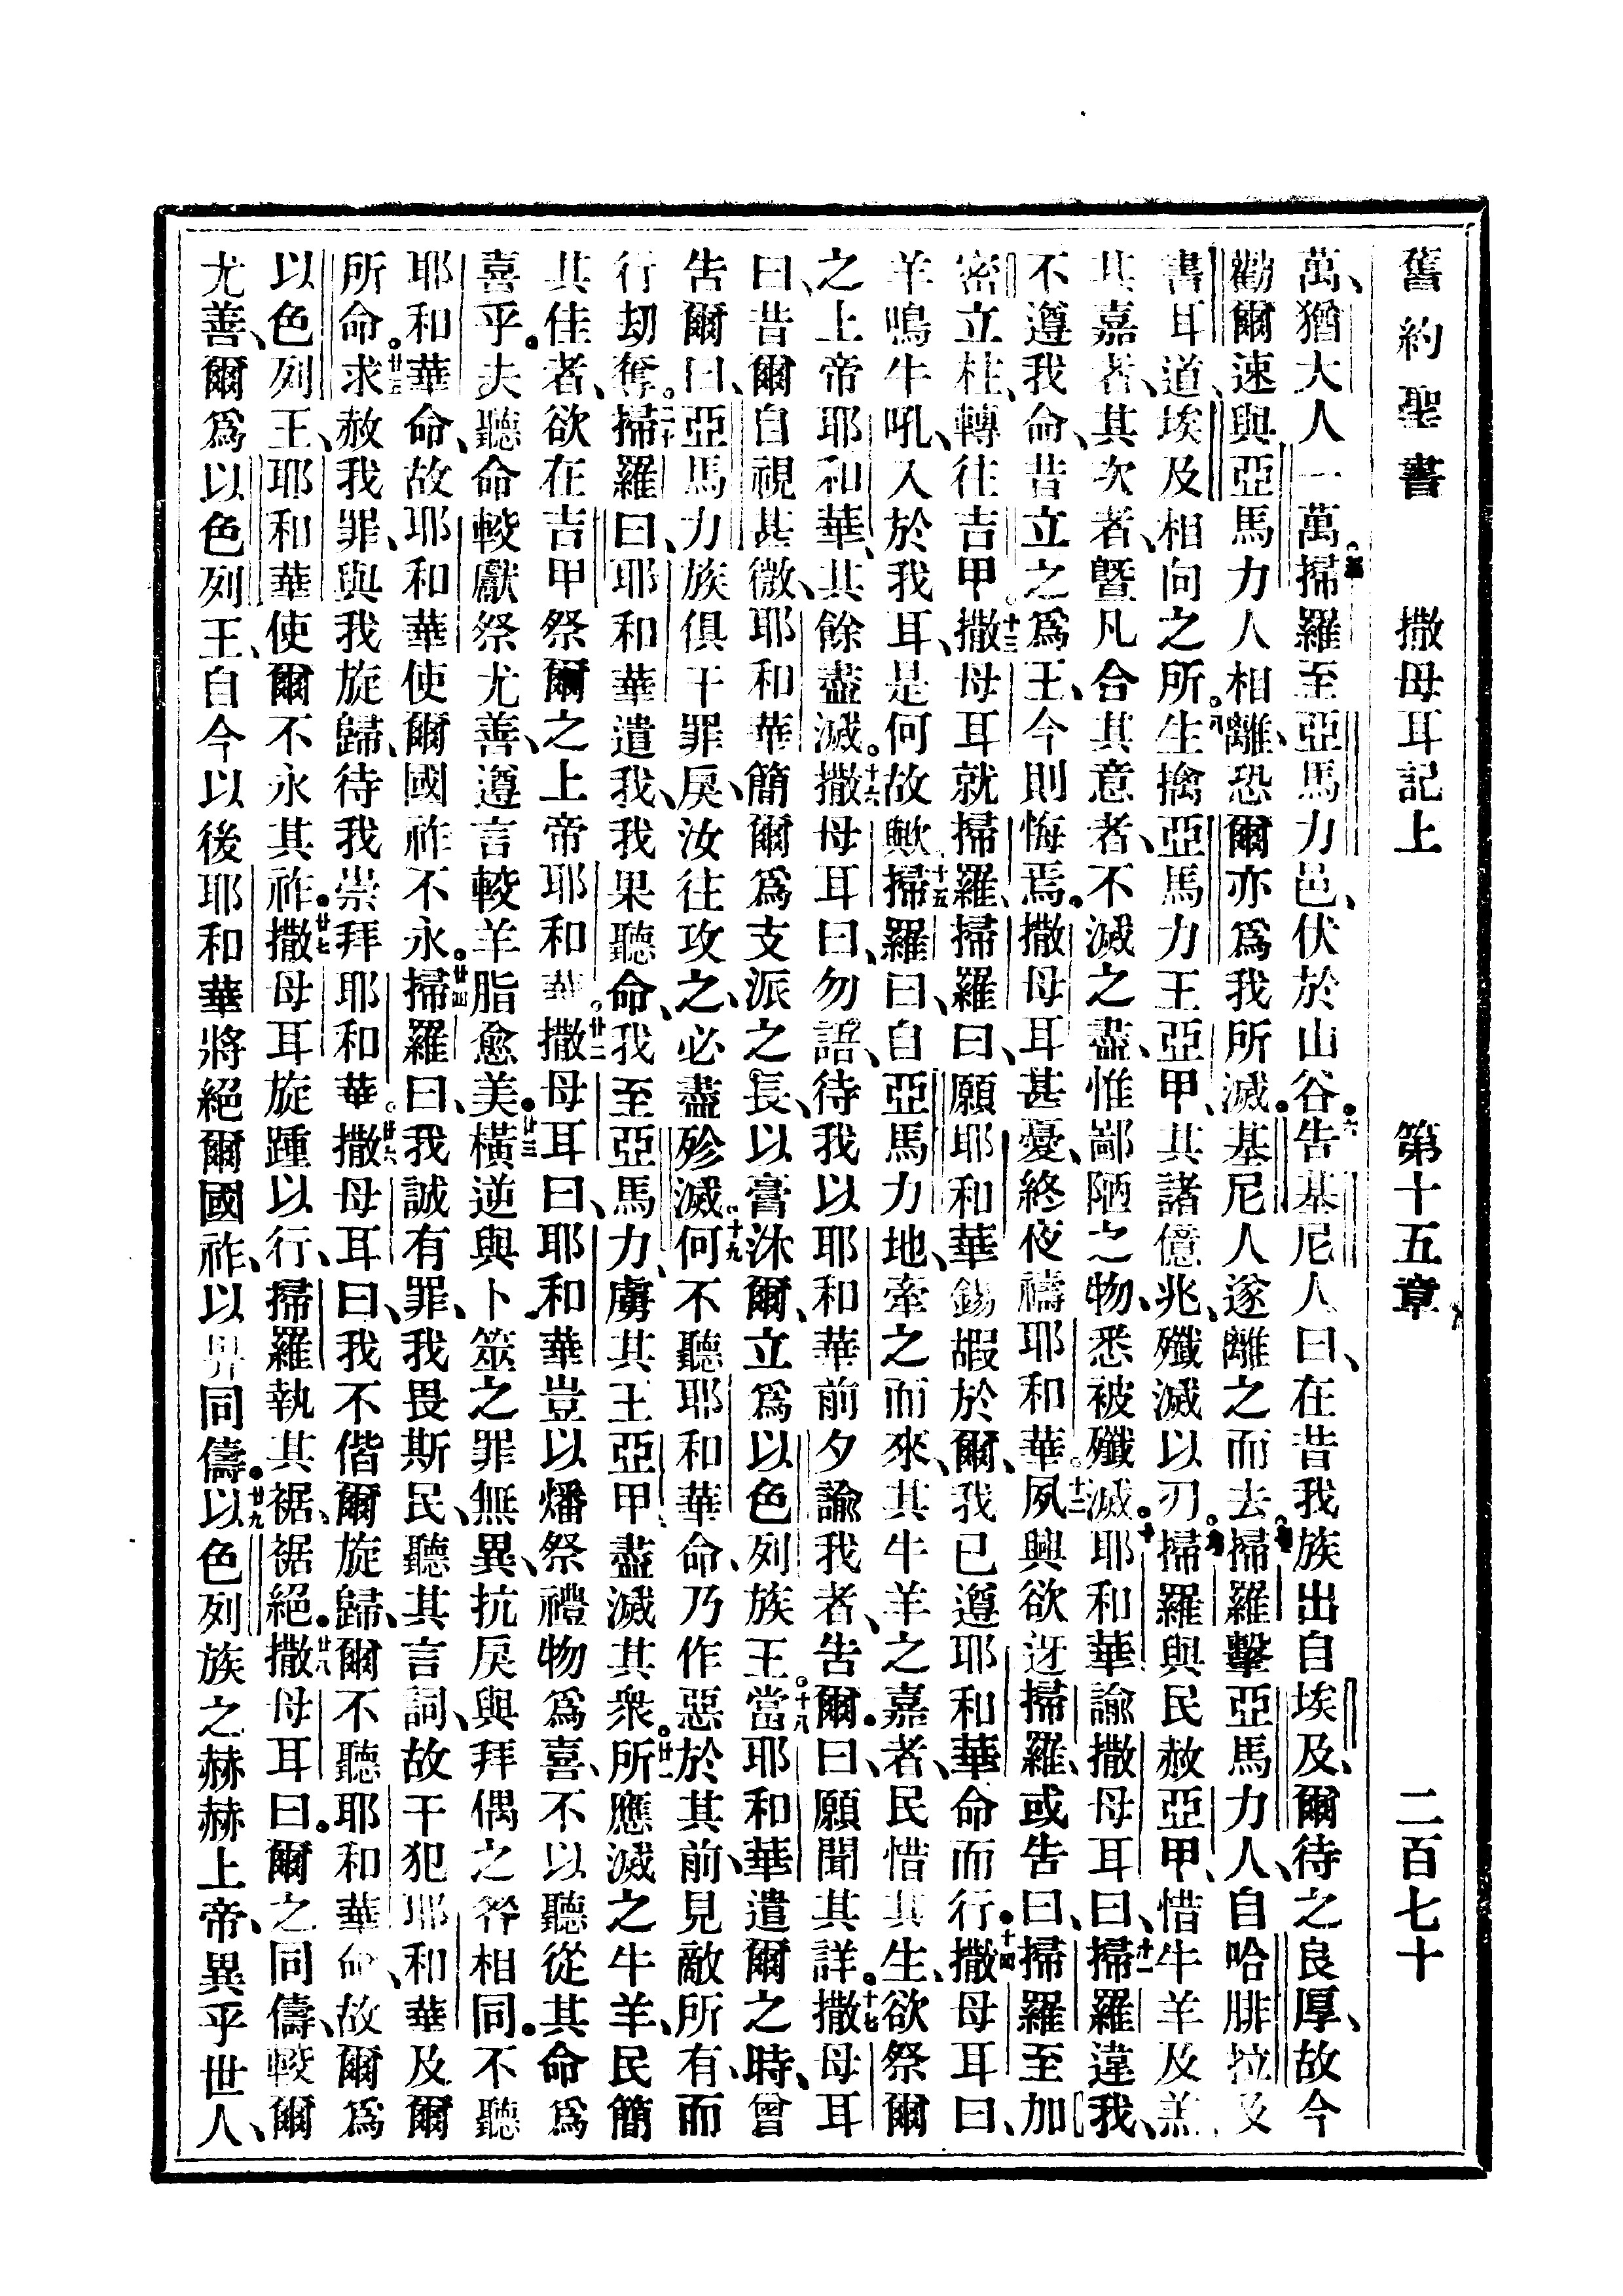 舊約聖書 撒母耳記上 第十五章 二百七十
萬、猶大人一萬。五掃羅至亞馬力邑、伏於山谷。六告基尼人曰、在昔我族出自埃及、爾待之良厚、故今
勸爾速與亞馬力人相離、恐爾亦爲我所滅。基尼人遂離之而去。七掃羅擊亞馬力人、自哈腓拉及
書耳道、埃及相向之所。八生擒亞馬力王亞甲、其諸億兆、殲滅以刃。九掃羅與民赦亞甲、惜牛羊及羔、
其嘉者、其次者、曁凡合其意者、不滅之盡、惟鄙陋之物、悉被殲滅。十耶和華諭撒母耳曰、十一掃羅違我、
不遵我命、昔立之爲王、今則悔焉。撒母耳甚憂、終夜禱耶和華。十二夙興欲迓掃羅、或告曰、掃羅至加
密立柱、轉往吉甲。十三撒母耳就掃羅、掃羅曰、願耶和華錫嘏於爾、我已遵耶和華命而行。十四撒母耳曰、
羊鳴牛吼、入於我耳、是何故歟。十五掃羅曰、自亞馬力地、牽之而來、其牛羊之嘉者、民惜其生、欲祭爾
之上帝耶和華、其餘盡滅。十六撒母耳曰、勿語、待我以耶和華前夕諭我者、告爾。曰、願聞其詳。十七撒母耳
曰、昔爾自視甚微、耶和華簡爾爲支派之長、以膏沐爾、立爲以色列族王。十八當耶和華遣爾之時、曾
告爾曰、亞馬力族俱干罪戾、汝往攻之、必盡殄滅。十九何不聽耶和華命、乃作惡於其前、見敵所有、而
行刼奪。二十掃羅曰、耶和華遣我、我果聽命、我至亞馬力、虜其王亞甲、盡滅其衆。廿一所應滅之牛羊、民簡
其佳者、欲在吉甲祭爾之上帝耶和華。廿二撒母耳曰、耶和華豈以燔祭禮物爲喜、不以聽從其命爲
喜乎。夫聽命較獻祭尤善、遵言較羊脂愈美。廿三橫逆與卜筮之罪無異、抗戾與拜偶之咎相同。不聽
耶和華命、故耶和華使爾國祚不永。廿四掃羅曰、我誠有罪、我畏斯民、聽其言詞、故干犯耶和華及爾
所命。廿五求赦我罪、與我旋歸、待我崇拜耶和華。廿六撒母耳曰、我不偕爾旋歸、爾不聽耶和華命、故爾爲
以色列王、耶和華使爾不永其祚。廿七撒母耳旋踵以行、掃羅執其裾、裾絕。廿八撒母耳曰。爾之同儔、較爾
尤善、爾爲以色列王、自今以後耶和華將絕爾國祚、以畀同儔。廿九以色列族之赫赫上帝、異乎世人、